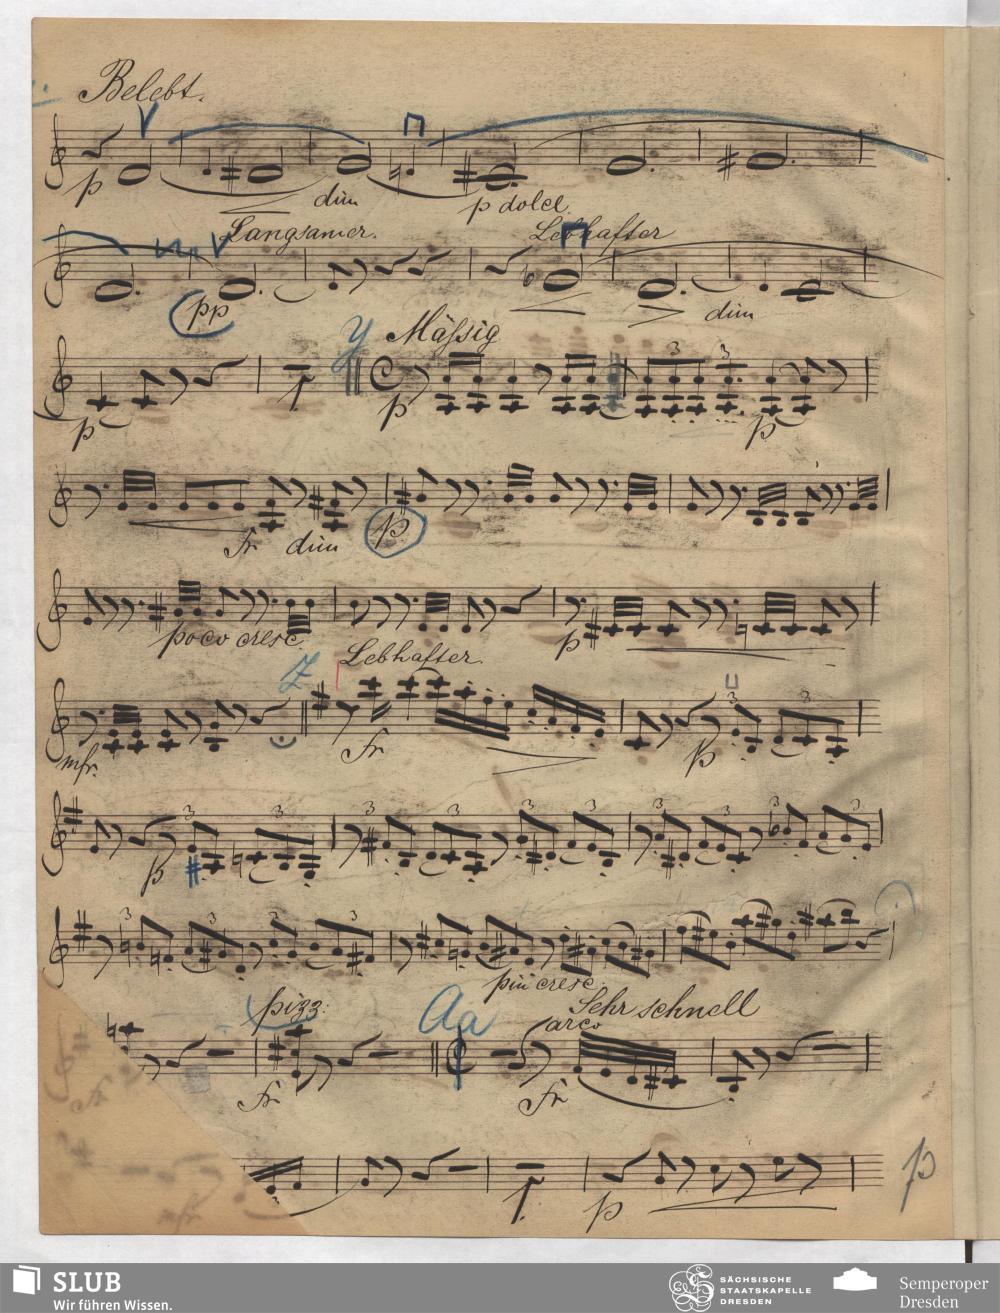 Belebt.
p dim p dolce
Langsamer. Lebhafter
pp dim
y Mäßig
p 3 3
p p
fr dim p
poco cresc. p
Z Lebhafter.
3 3
mfr. fr p
3 3 3 3 3 3 3 3 3
p
3 3 3
più cresc.
pizz: Aa arco Sehr schnell
fr fr
p p
SLUB
Wir führen Wissen.
SÄCHSISCHE
STAATSKAPELLE
DRESDEN
Semperoper
Dresden